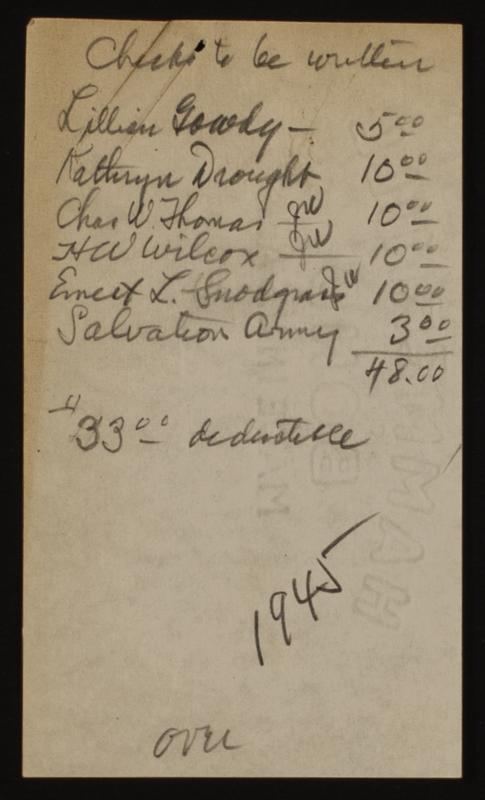 Checks to be written
Lillian Gowdy — 5 00
Kathryn Drought 10 00
Chas W. Thomas JW 10 00
HW Wilcox JW 10 00
Ernest L. Snodgrass JW 10 00
Salvation Army 3 00
48.00
33 00 deductible
1945
over